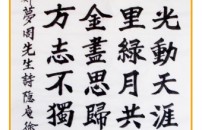 光動天涯
里綠月共
金盡思歸
方志不獨
夢周先生詩隱庵徐